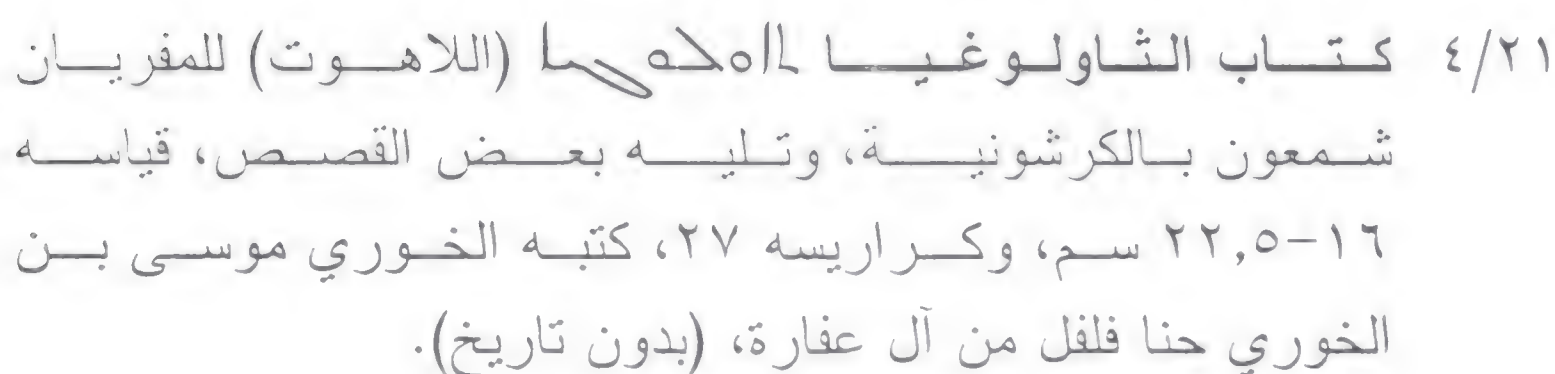 ٤/٢١ كتاب الثاولوغيا ܬܐܘܠܘܓܝܐ (اللاهوت) للمفريان
شمعون بالكرشونية، وتليه بعض القصص، قياسه
١٦-٢٢,٥ سم، وكراريسه ٢٧، كتبه الخوري موسى بن
الخوري حنا فلفل من آل عفارة، (بدون تاريخ).